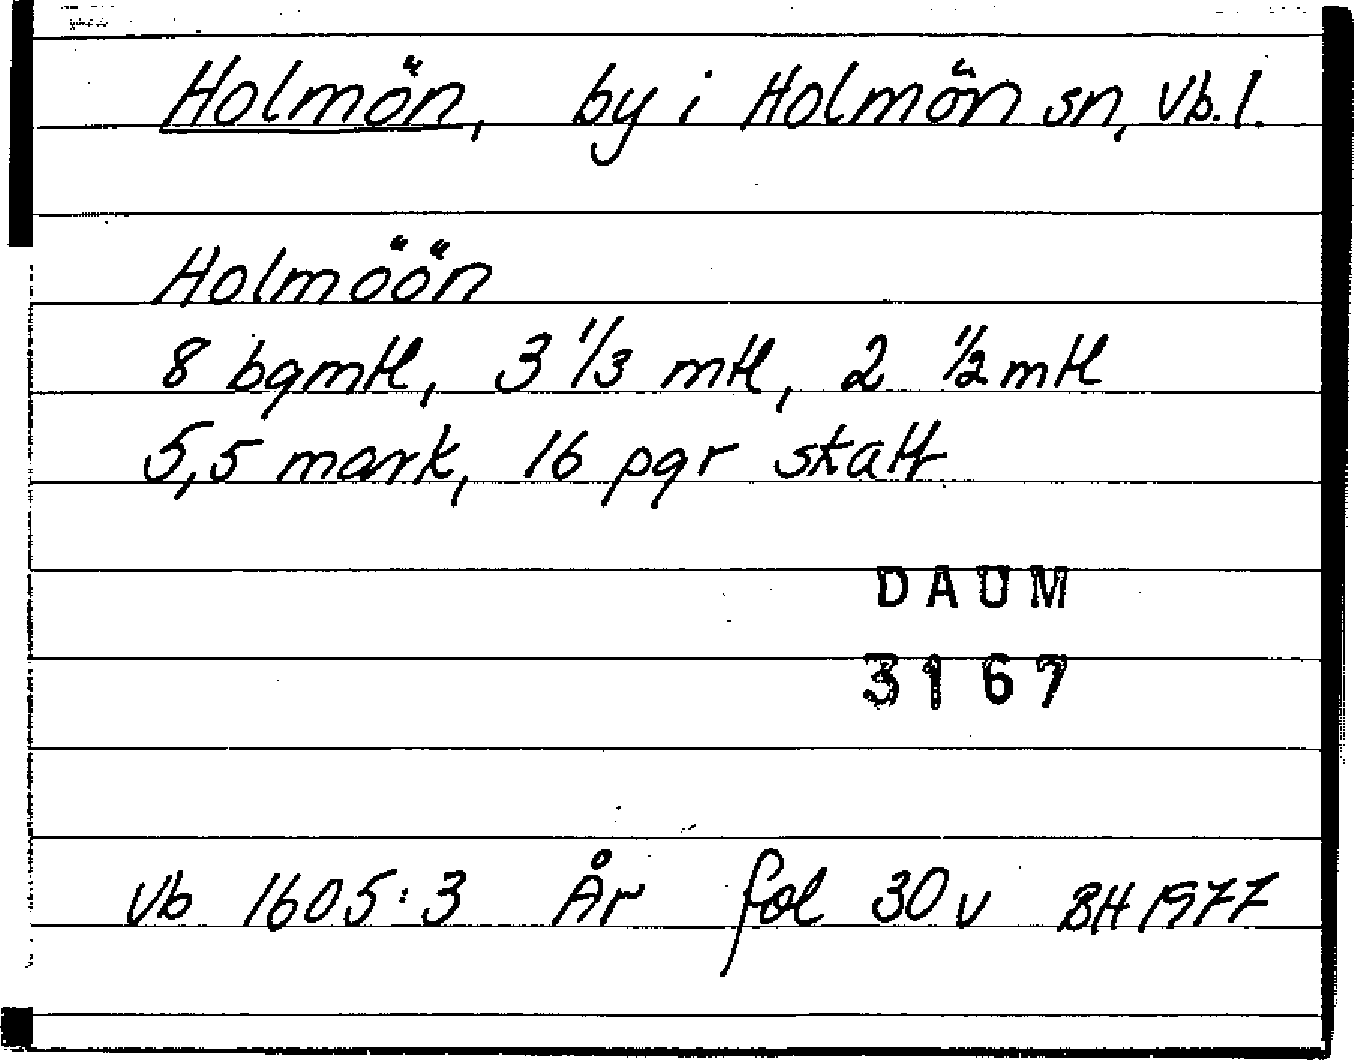 Holmön, by i Holmön sn, Vb. l.
Holmöön
8 bgmtl, 3 1/3 mtl, 2 1/2 mtl
5,5 mark, 16 pgr skatt
DAUM
3167
Vb 1605:3 År fol 30 v BH 1977